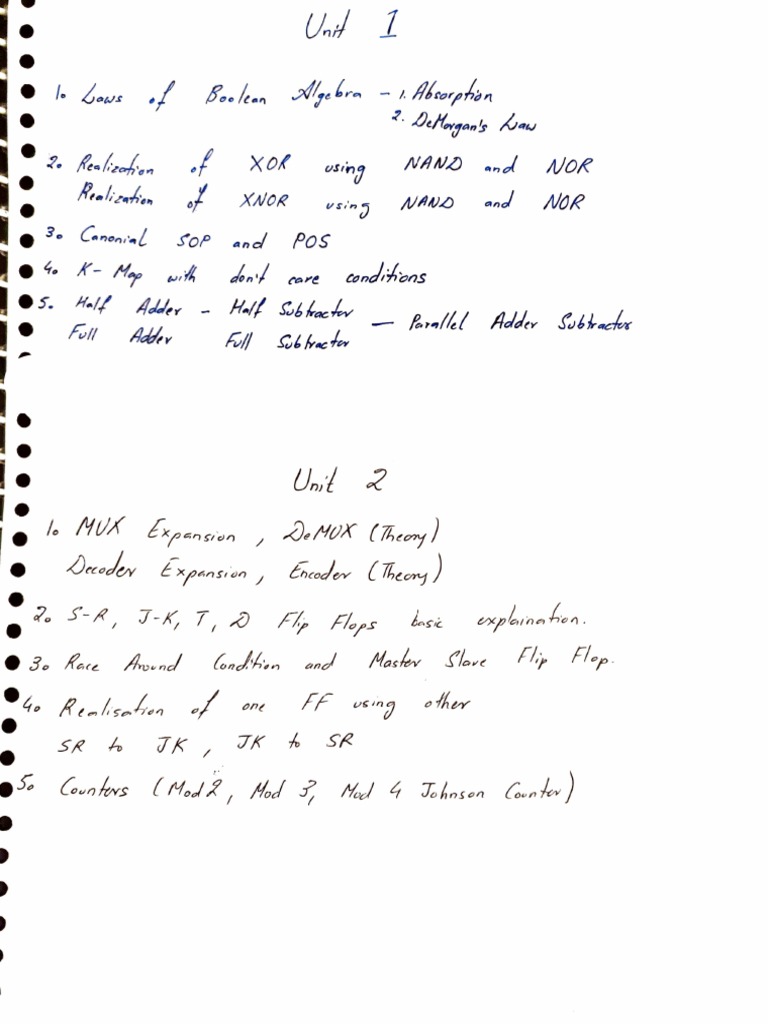 Unit 1
1. Laws of Boolean Algebra - 1. Absorption
2. DeMorgan's Law
2. Realization of XOR using NAND and NOR
Realization of XNOR using NAND and NOR
3. Canonial SOP and POS
4. K-Map with don't care conditions
5. Half Adder - Half Subtractor
Full Adder Full Subtractor — Parallel Adder Subtractor
Unit 2
1. MUX Expansion, DeMUX (Theory)
Decoder Expansion, Encoder (Theory)
2. S-R, J-K, T, D Flip Flops basic explaination.
3. Race Around Condition and Master Slave Flip Flop.
4. Realisation of one FF using other
SR to JK, JK to SR
5. Counters (Mod 2, Mod 3, Mod 4 Johnson Counter)